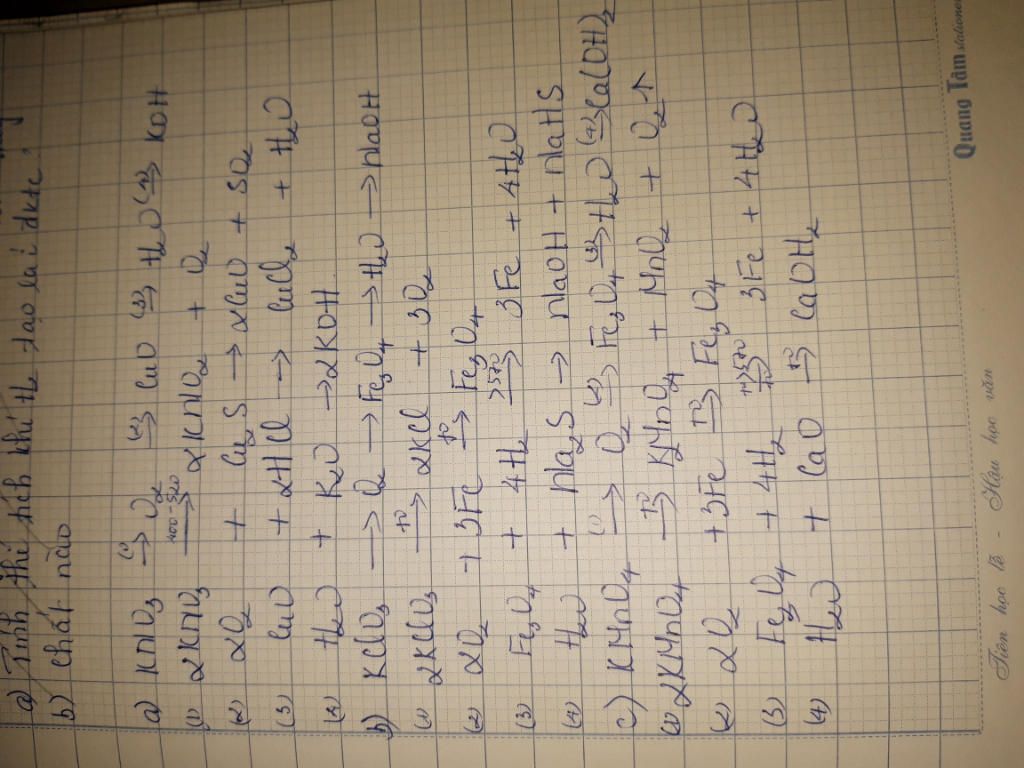 a) Tính thể tích khí H₂ tạo
b) Chất nào
a) KNO₃ —(1)→ O₂ —(2)→ CuO —(3)→ H₂O —(4)→ KOH
(1) 2KNO₃ —400-520→ 2KNO₂ + O₂
(2) 2O₂ + Cu₂S → 2CuO + SO₂
(3) CuO + 2HCl → CuCl₂ + H₂O
(4) H₂O + K₂O → 2KOH
b) KClO₃ → O₂ → Fe₃O₄ → H₂O → NaOH
(1) 2KClO₃ —t°→ 2KCl + 3O₂
(2) 2O₂ + 3Fe —t°→ Fe₃O₄
(3) Fe₃O₄ + 4H₂ —>570→ 3Fe + 4H₂O
(4) H₂O + Na₂S → NaOH + NaHS
c) KMnO₄ —(1)→ O₂ —(2)→ Fe₃O₄ —(3)→ H₂O —(4)→ Ca(OH)₂
2KMnO₄ —t°→ K₂MnO₄ + MnO₂ + O₂↑
(2) 2O₂ + 3Fe —t°→ Fe₃O₄
(3) Fe₃O₄ + 4H₂ —570→ 3Fe + 4H₂O
(4) H₂O + CaO —t°→ CaOH₂
Quang Tâm stationery
Tiên học lễ - Hậu học văn